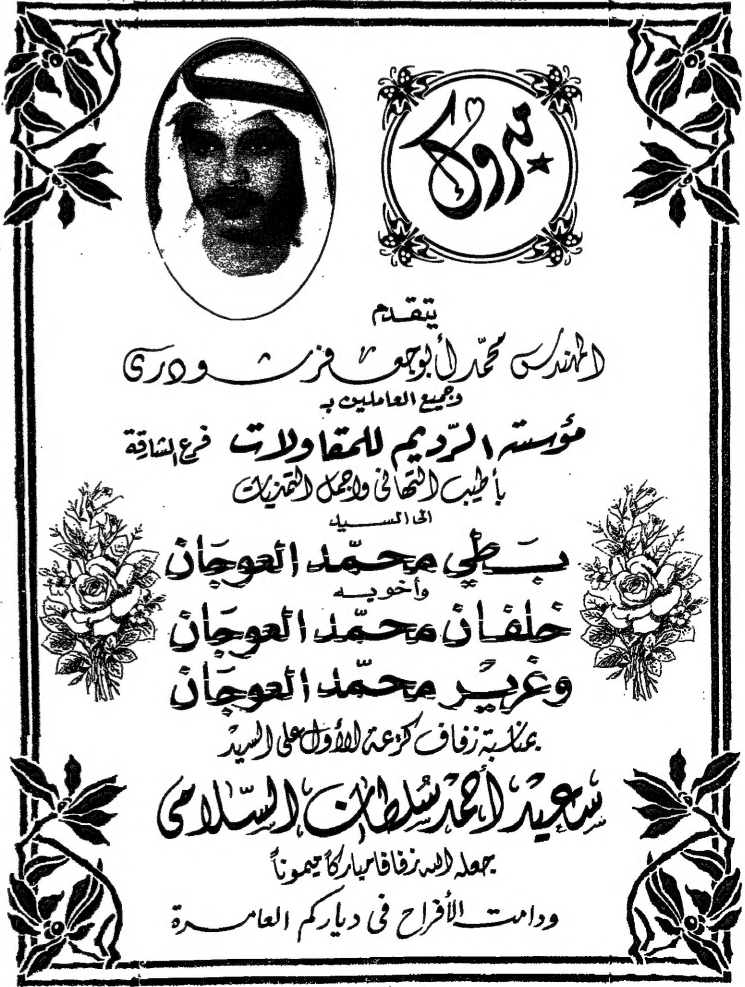 مبروك
يتقدم
المهندس محمد أبو جعفر شودري
وجميع العاملين بـ
مؤسسة الرديم للمقاولات فرع الشارقة
بأطيب التهاني واجمل التمنيات
الى السيد
بـطي محمّد العوجان
وأخويه
خلفان محمّد العوجان
وغرير محمّد العوجان
بمناسبة زفاف كريمة الأول على السيد
سعيد أحمد سلطان السّلامي
جعله الله زفافا مباركاً ميموناً
ودامت الأفراح في دياركم العامرة